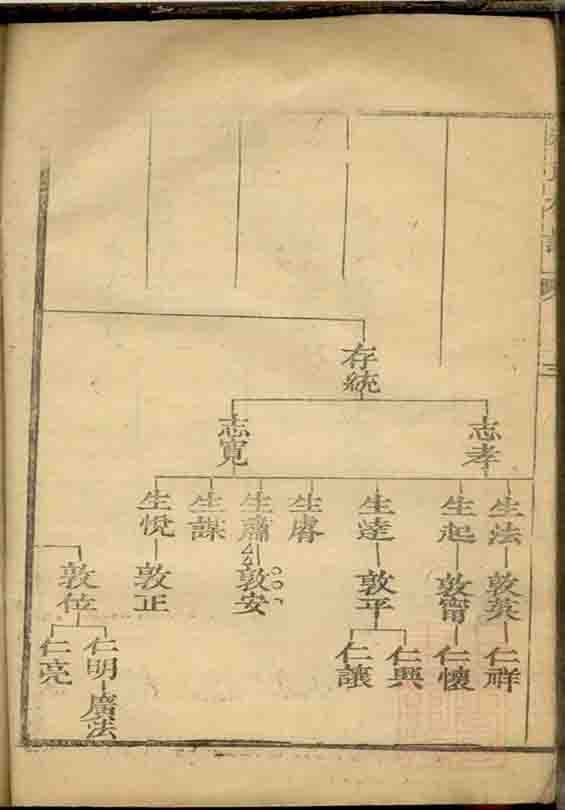 存統
志孝
志寬
生法
生起
生達
生膚
生肅
生謀
生悅
敦英
敦甯
敦平
敦安
敦正
敦位
仁祥
仁懷
仁興
仁讓
仁明
仁亮
廣法